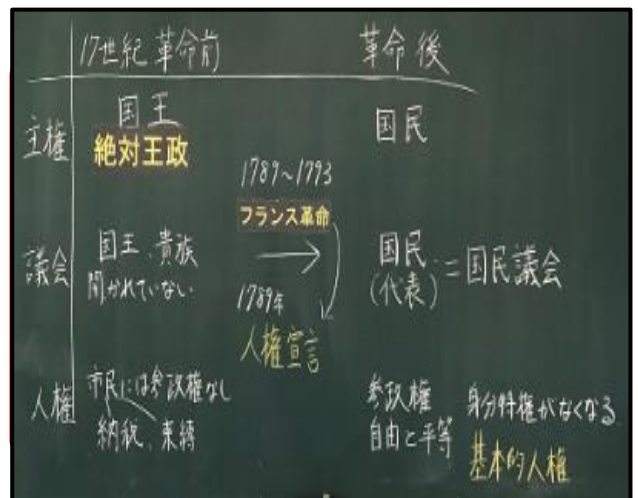 17世紀革命前
革命後
主権
国王
絶対王政
国民
1789~1793
フランス革命
議会
国王、貴族
開かれていない
国民
(代表)
=国民議会
1789年
人権宣言
人権
市民には参政権なし
納税、束縛
参政権
自由と平等
身分特権がなくなる
基本的人権